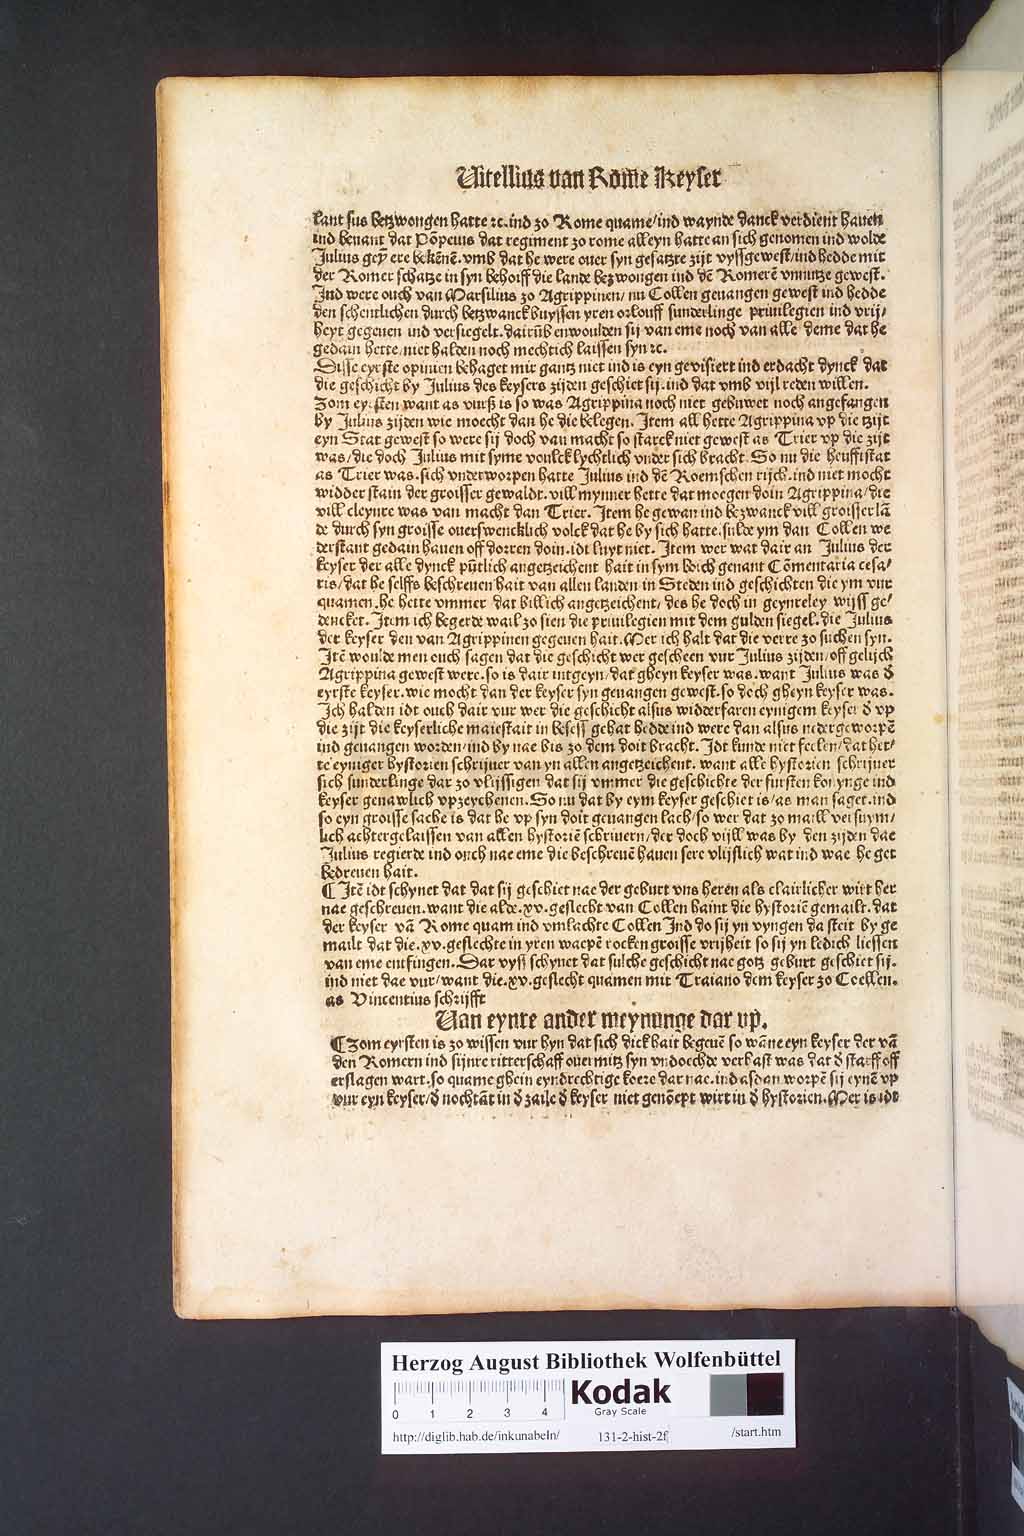 Vitellius van Rome Keyser
lant sus betzwongen hatte ⁊c. ind zo Rome quame/ ind waynde danck verdient hauen
ind benant dat Põpeius dat regiment zo rome alleyn hatte an sich genomen ind wolde
Julius geỹ ere bekēnē. vmb dat he were ouer syn gesatzte zijt vyssgewest/ ind hedde mit
der Romer schatze in syn behoiff die lande bezwongen ind dē Romerē vnnutze gewest.
Ind were ouch van Marsilius zo Agrippinen/ nu Collen geuangen gewest ind hedde
den schentlichen durch betzwanck buyssen yren orlouff sunderlinge priuilegien ind vrij/
heyt gegeuen ind versiegelt. dairũb enwoulden sij van eme noch van alle deme dat he
gedain hette/ niet halden noch mechtich laissen syn ⁊c.
Disse eyrste opinien behaget mir gantz niet ind is eyn gevisiert ind erdacht dynck dat
die geschicht by Julius des keysers zijden geschiet sij. ind dat vmb vijl reden willen.
Zom eyrsten want as vurß is so was Agrippina noch niet gebuwet noch angefangen
by Julius zijden wie moecht dan he die belegen. Item all hette Agrippina vp die tzijt
eyn Stat gewest so were sij doch van macht so starck niet gewest as Trier vp die zijt
was/ die doch Julius mit syme voulck lychtlich vnder sich bracht. So nu die heufftstat
as Trier was. sich vnderworpen hatte Julius ind dē Roemschen rijch. ind niet mocht
widder stain der groisser gewaldt. vill mynner hette dat moegen doin Agrippina/ die
vill cleynre was van macht dan Trier. Item he gewan ind bezwanck vill groisser lã
de durch syn groisse ouerswencklich volck dat he by sich hatte. sulde ym dan Collen we
derstant gedain hauen off dorren doin. idt luyt niet. Item wer wat dair an Julius der
keyser der alle dynck pũtlich angetzeichent hait in sym boich genant Cõmentaria cesa/
ris/ dat he selffs beschreuen hait van allen landen in Steden ind geschichten die ym vur
quamen. he hette vmmer dat billich angetzeichent/ des he doch in geynreley wijss ge/
dencket. Item ich begerde wail zo sien die priuilegien mit dem gulden siegel. die Julius
der keyser den van Agrippinen gegeuen hait. Mer ich halt dat die verre zo suchen syn.
Itē woulde men ouch sagen dat die geschicht wer gescheen vur Julius zijden/ off gelijch
Agrippina gewest were. so is dair intgeyn/ dat gheyn keyser was. want Julius was d̕
eyrste keyser. wie mocht dan der keyser syn geuangen gewest. so doch gheyn keyser was.
Ich halden idt ouch dair vur wer die geschicht alsus widderfaren eynigem keyser d̕ vp
die zijt die keyserliche maiestait in besess gehat hedde ind were dan alsus nedergeworpē
ind geuangen worden/ ind by nae bis zo dem doit bracht. Idt kunde niet feelen/ dat het/
te eyniger hystorien schrijuer van yn allen angetzeichent. want alle hystorien schrijuer
sich sunderlinge dar zo vlijssigen dat sij vmmer die geschichte der fursten konynge ind
keyser genawlich vpzeychenen. So nu dat by eym keyser geschiet is/ as man saget. ind
so eyn groisse sache is dat he vp syn doit geuangen lach/ so wer dat zo maill versuym/
lich achtergelaissen van allen hystoriē schriuern/ der doch vijll was by den zijden dae
Julius regierde ind ouch nae eme die beschreuē hauen sere vlijslich wat ind wae he get
bedreuen hait.
¶ Itē idt schynet dat dat sij geschiet nae der geburt vns heren als clairlicher wirt her
nae geschreuen. want die alde .xv. geslecht van Collen haint die hystoriē gemailt. dat
der keyser vã Rome quam ind vmlachte Collen Ind do sij yn vyngen da steit by ge
mailt dat die .xv. geslechte in yren waepē rocken groisse vrijheit so sij yn ledich liessen
van eme entfingen. Dar vyss schynet dat sulche geschicht nae gotz geburt geschiet sij.
ind niet dae vur/ want die .xv. geslecht quamen mit Traiano dem keyser zo Coellen.
as Vincentius schrijfft
Van eynre ander meynunge dar vp.
¶ Zom eyrsten is zo wissen vur hyn dat sich dick hait begeuē so wãne eyn keyser der vã
den Romern ind sijnre ritterschaff ouermitz syn vndoechde verkast was dat d̕ starff off
erslagen wart. so quame ghein eyndrechtige koere dar nae. ind asdan worpē sij eynē vp
vur eyn keyser/ d̕ nochtãt in d̕ zaile d̕ keyser niet genõept wirt in d̕ hystorien. Mer is idt
Herzog August Bibliothek Wolfenbüttel
0 1 2 3 4
Kodak
Gray Scale
http://diglib.hab.de/inkunabeln/ 131-2-hist-2f /start.htm